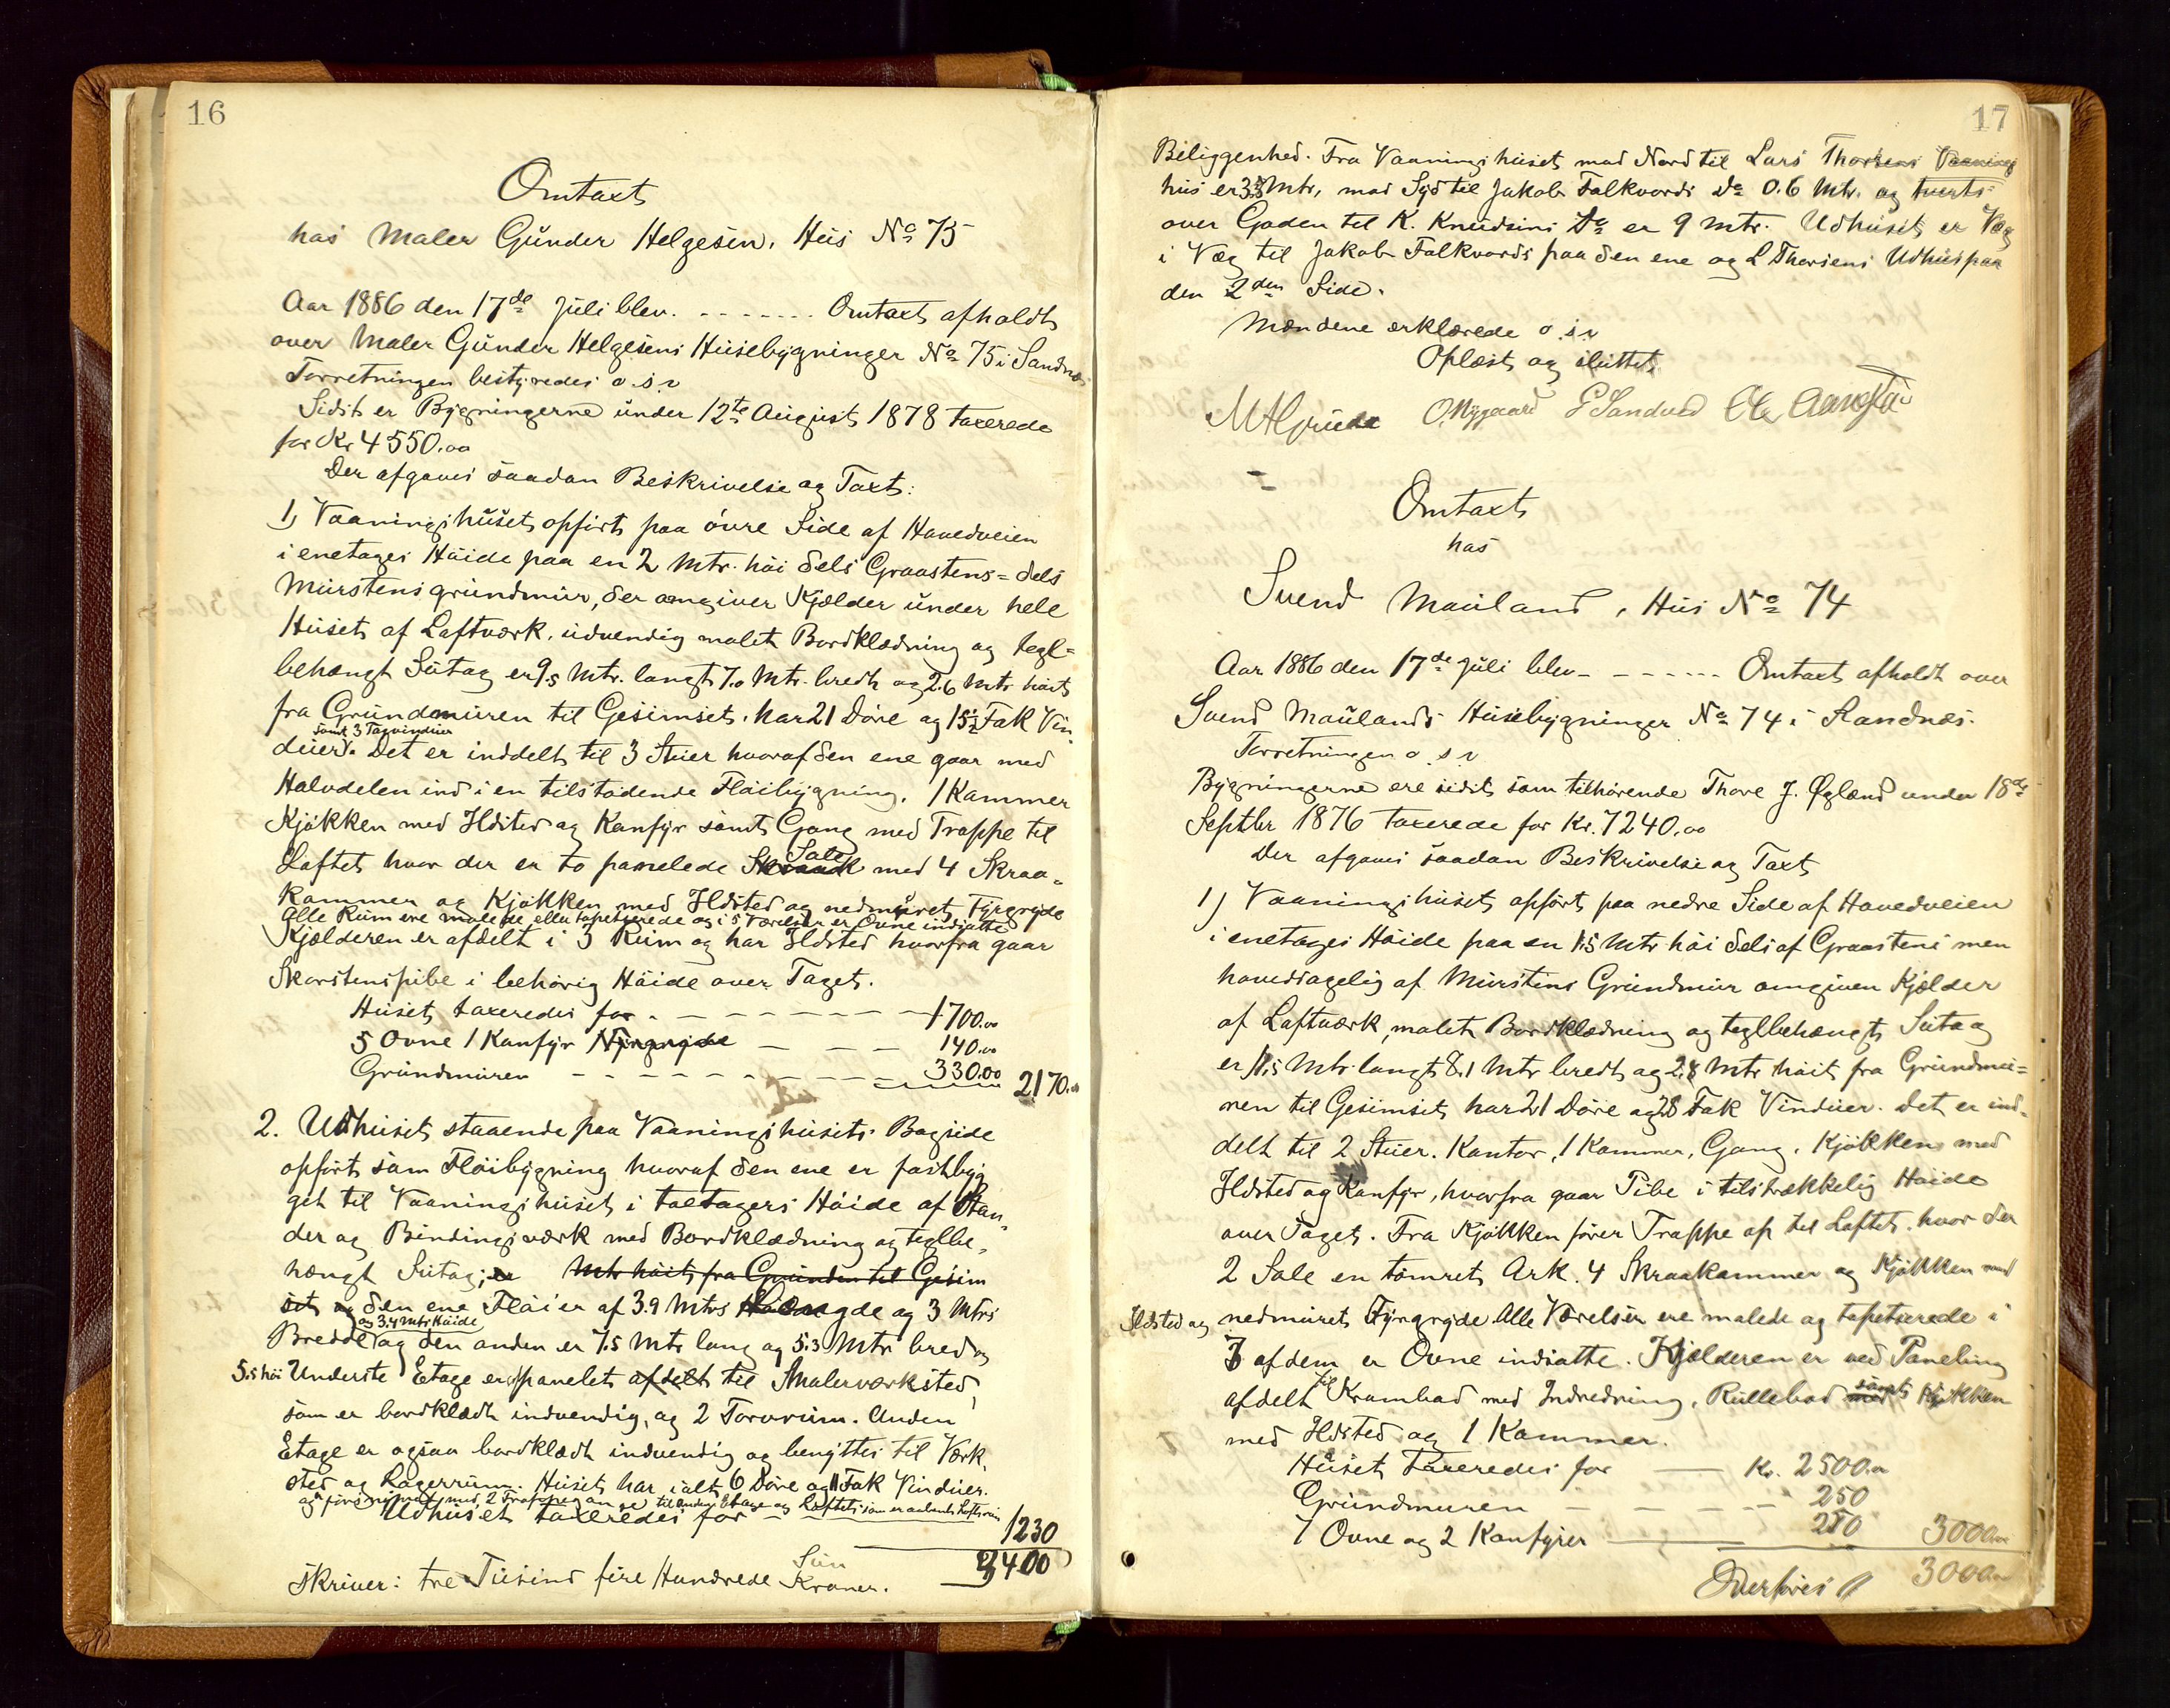 16
Omtaxt
hos Maler Gunder Helgesen, Hus No 75
Aar 1886 den 17de Juli blev. - - - - - - - Omtaxt afholdt
over Maler Gunder Helgesens Husebygninger No 75 i Sandnæs
Forretningen bestyredes o.s.v
Sidst er Bygningerne under 12te August 1878 taxerede
for Kr 4550.00
Der afgaves saadan Beskrivelse og Taxt:
1, Vaaningshuset, opført paa øvre Side af Hovedveien
i enetages Høide paa en 2 Mtr. høi dels Graastens= dels
Murstensgrundmur, der omgiver Kjælder under hele
Huset, af Laftværk, udvendig malet Bordklædning og tegl=
behængt Sutag er 9.5 Mtr. langt 7.0 Mtr. bredt og 2.6 Mtr høit
fra Grundmuren til Gesimset, har 21 Døre og 15 1/2 Fak Vin,
samt 3 Tagvinduer
duer. Det er inddelt til 3 Stuer hvoraf den ene gaar med
Halvdelen ind i en tilstødende Fløibygning, 1 Kammer
Kjøkken med Ildsted og Komfyr samt Gang med Trappe til
Loftet hvor der er to panelede Sale med 4 Skraa=
kammer og Kjøkken med Ildsted og nedmuret Fyrgryde
Alle Rum ere malede eller tapetserede og i 5 Værelser er Ovne indsatte
Kjælderen er afdelt i 3 Rum og har Ildsted hvorfra gaar
Skorstenspibe i behørig Høide over Taget.
Huset taxeredes for - - - - - - - 1700.00
5 Ovne 1 Komfyr 1 Fyrgryde - - - 140.00
Grundmuren - - - - - - - - 330.00 2170.00
2. Udhuset staaende paa Vaaningshusets Bagside
opført som Fløibygning hvoraf den ene er fastbyg
get til Vaaningshuset i toetagers Høide af Stan,
der og Bindingsværk med Bordklædning og teglbe,
hængt Sutag; er Mtr høit fra Grunden til Gesim
set og den ene Fløi er af 3.9 Mtrs Længde og 3 Mtrs
og 3.4 Mtr Høide
Bredde og den anden er 7.5 Mtr lang og 5.3 Mtr bred og
5.5 høi Underste Etage er panelet afdelt til Malerværksted,
som er bordklædt indvendig, og 2 Torvrum. Anden
Etage er ogsaa bordklædt indvendig og benyttes til Værk,
sted og Lagerrum. Huset har ialt 6 Døre og 11 Fak Vinduer.
og til anden Etage og Loftet som er aabent Loftsrum
Udhuset taxeredes for - 1230
3400
Skriver: tre Tusind fire Hundrede Kroner.
17
Beliggenhed. Fra Vaaningshuset mod Nord til Lars Thorsens Vaanings
hus er 3.3 Mtr, mod Syd til Jakob Falkvords Do 0.6 Mtr. og tverts
over Gaden til K. Knudsens Do er 9 Mtr. Udhuset er Væg
i Væg til Jakob Falkvords paa den ene og L Thorsens Udhus paa
den 2den Side.
Mændene erklærede o.s.v
Oplæst og sluttet.
M A Grude O. Nygaard G Sandved
Omtaxt
hos
Svend Mauland, Hus No 74
Aar 1886 den 17de Juli blev - - - - - - Omtaxt afholdt over
Svend Maulands Husebygninger No 74 i Sandnæs.
Forretningen o.s.v
Bygningerne ere sidst som tilhørende Thore J. Øglænd under 18de
Septbr 1876 taxerede for Kr. 7240.00
Der afgaves saadan Beskrivelse og Taxt
1) Vaaningshuset opført paa nedre Side af Hovedveien
i enetages Høide paa en 1.5 Mtr høi dels af Graastens men
hovedsagelig af Murstens Grundmur omgiven Kjælder
af Laftværk, malet Bordklædning og teglbehængt Sutag
er 11.5 Mtr. langt 8.1 Mtr bredt og 2.8 Mtr høit fra Grundmu=
ren til Gesimset, har 21 Døre og 28 Fak Vinduer. Det er ind=
delt til 2 Stuer. Kontor, 1 Kammer, Gang, Kjøkken med
Ildsted og Komfyr, hvorfra gaar Pibe i tilstrækkelig Høide
over Taget. Fra Kjøkken fører Trappe op til Loftet, hvor der
2 Sale en tømret Ark. 4 Skraakammer og Kjøkken med
Ildsted og nedmuret Fyrgryde Alle Værelser ere malede og tapetserede i
7 af dem er Ovne indsatte. Kjælderen er ved Paneling
afdelt til Krambod med Indredning, Rullebod samt Kjøkken
med Ildsted og 1 Kammer.
Huset Taxeredes for - Kr. 2500.00
Grundmuren - - - - 250
7 Ovne og 2 Komfyrer - 250 3000.00
Overføres 3000.00